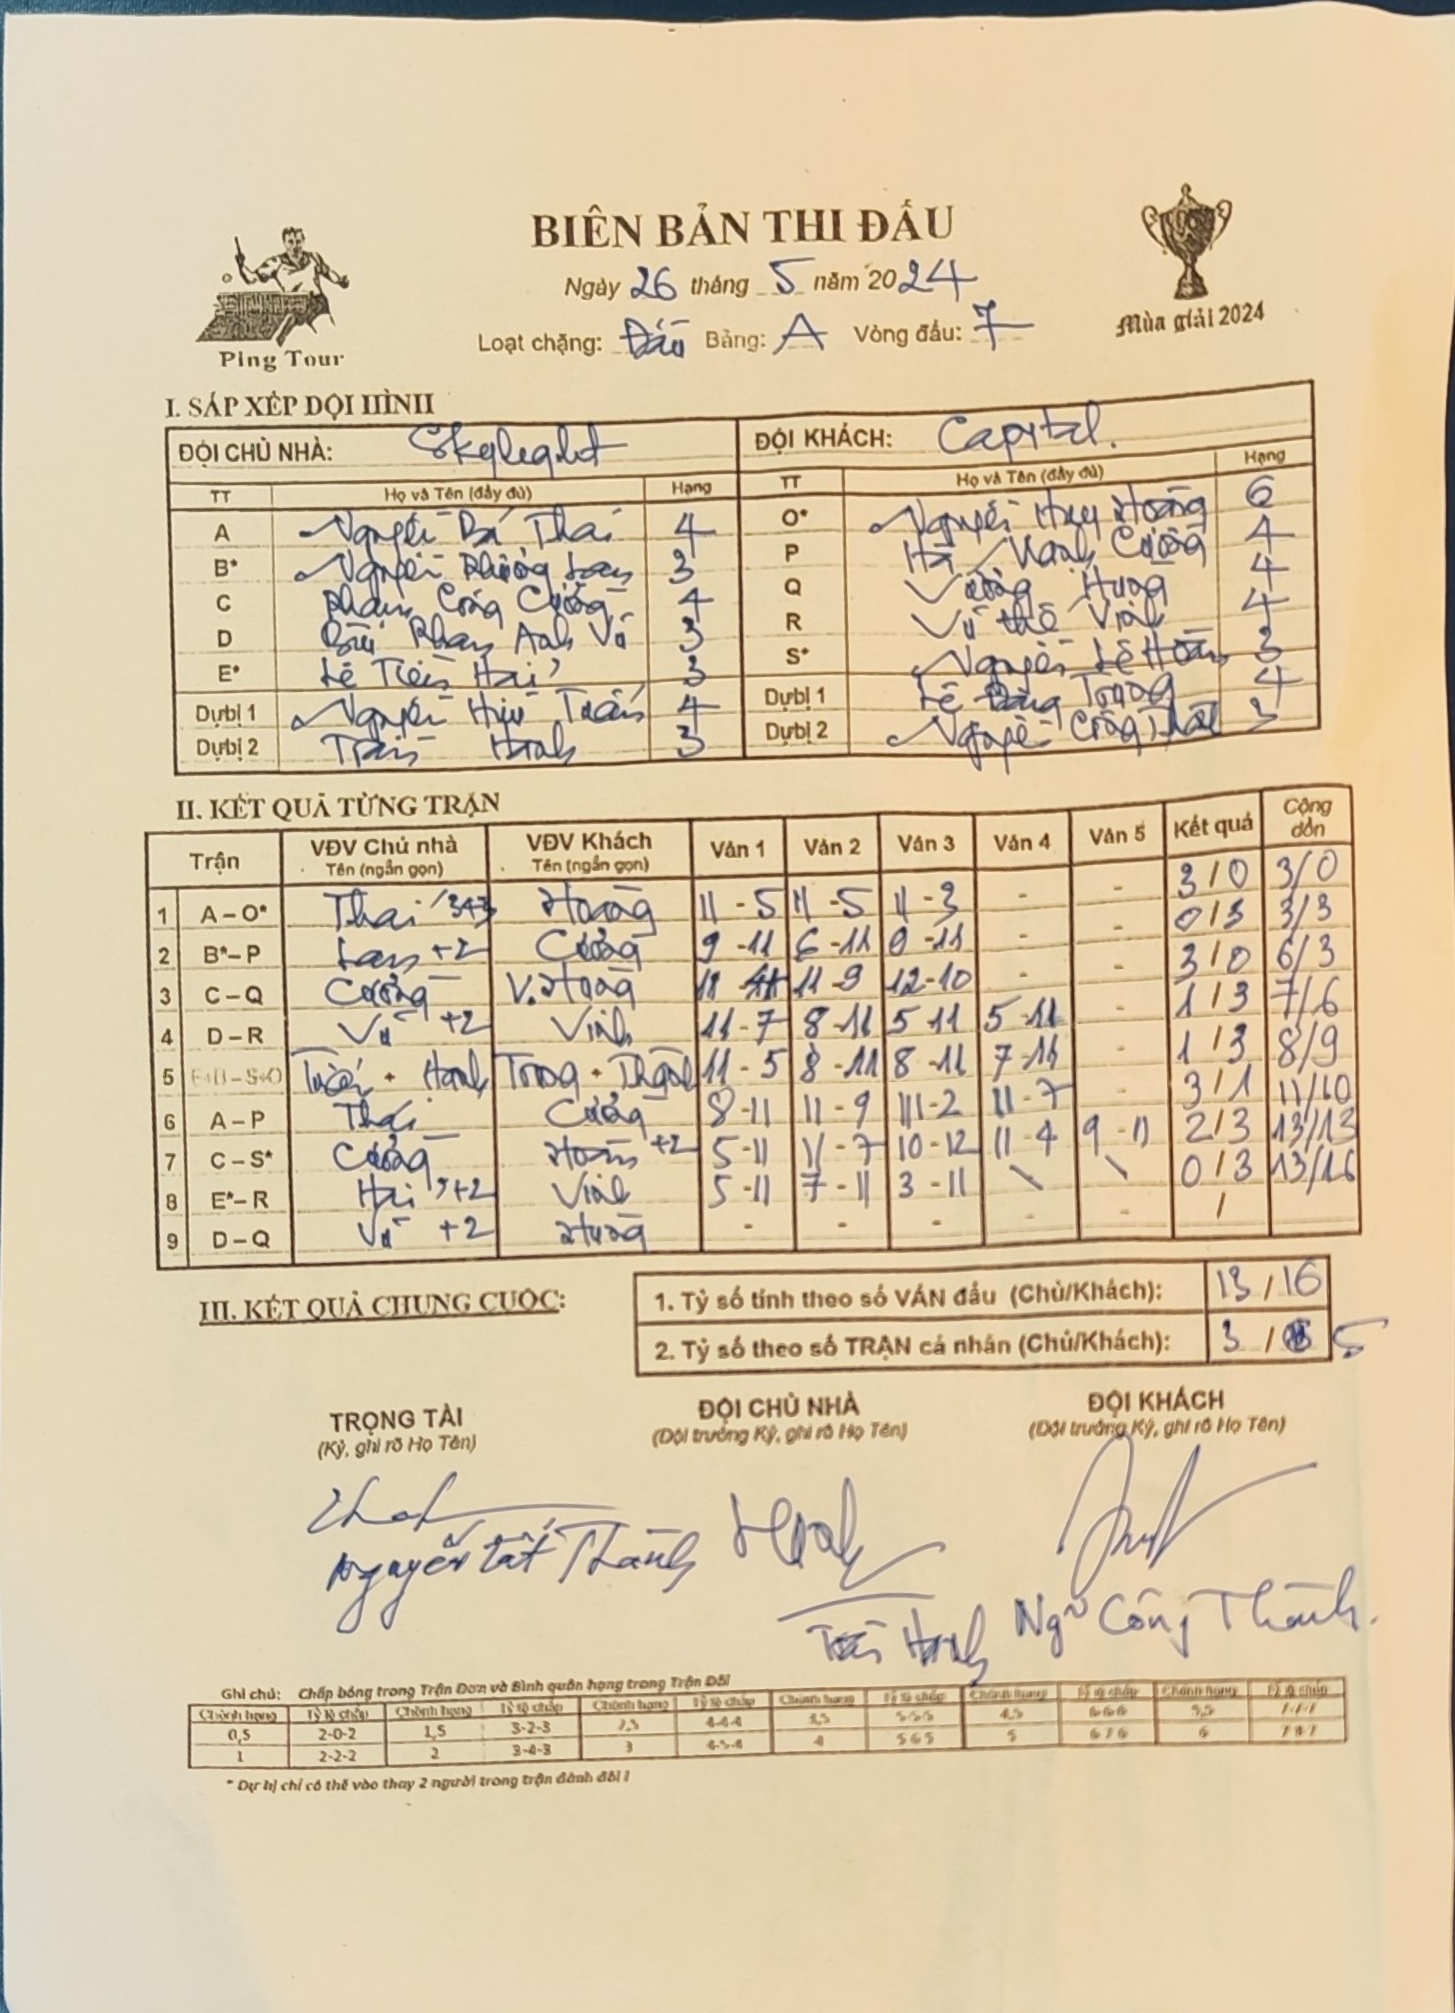 BIÊN BẢN THI ĐẤU
Ngày 26 tháng 5 năm 2024
Loạt chặng: Đấu Bảng: A Vòng đấu: 7
Ping Tour
Mùa giải 2024
I. SẮP XẾP ĐỘI HÌNH
ĐỘI CHỦ NHÀ: Skylight ĐỘI KHÁCH: Capital.
TT Họ và Tên (đầy đủ) Hạng TT Họ và Tên (đầy đủ) Hạng
A Nguyễn Bá Thái 4 O* Nguyễn Huy Hoàng 6
B* Nguyễn Phương Lan 3 P Hà Mạnh Cường 4
C Phạm Công Cường 4 Q Vương Hưng 4
D Bùi Phan Anh Vũ 3 R Vũ Thế Vinh 4
E* Lê Tiến Hải 3 S* Nguyễn Lê Hoàn 3
Dự bị 1 Nguyễn Hữu Tuấn 4 Dự bị 1 Lê Đăng Trọng 4
Dự bị 2 Trần Hanh 3 Dự bị 2 Nguyễn Công Thành 3
II. KẾT QUẢ TỪNG TRẬN
Trận VĐV Chủ nhà Tên (ngắn gọn) VĐV Khách Tên (ngắn gọn) Ván 1 Ván 2 Ván 3 Ván 4 Ván 5 Kết quả Cộng dồn
1 A – O* Thái 343 Hoàng 11 - 5 11 - 5 11 - 3 - - 3 / 0 3/0
2 B* – P Lan +2 Cường 9 - 11 6 - 11 0 - 11 - - 0 / 3 3/3
3 C – Q Cường V. Hoàng 11 - 11 - 9 12 - 10 - - 3 / 0 6/3
4 D – R Vũ +2 Vinh 11 - 7 8 - 11 5 - 11 5 - 11 - 1 / 3 7/6
5 E+B – S+O Tuấn + Hanh Trọng + Thành 11 - 5 8 - 11 8 - 11 7 - 11 - 1 / 3 8/9
6 A – P Thái Cường 8 - 11 11 - 9 11 - 2 11 - 7 - 3 / 1 11/10
7 C – S* Cường Hoàn +2 5 - 11 11 - 7 10 - 12 11 - 4 9 - 11 2 / 3 13/13
8 E* – R Hải +2 Vinh 5 - 11 7 - 11 3 - 11 \ \ 0 / 3 13/16
9 D – Q Vũ +2 Hưng - - - - - /
III. KẾT QUẢ CHUNG CUỘC:
1. Tỷ số tính theo số VÁN đấu (Chủ/Khách): 13 / 16
2. Tỷ số theo số TRẬN cá nhân (Chủ/Khách): 3 / 5
TRỌNG TÀI ĐỘI CHỦ NHÀ ĐỘI KHÁCH
(Ký, ghi rõ Họ Tên) (Đội trưởng Ký, ghi rõ Họ Tên) (Đội trưởng Ký, ghi rõ Họ Tên)
Nguyễn Tất Thành Trần Hanh Ngũ Công Thành.
Ghi chú: Chấp bóng trong Trận Đơn và Bình quân hạng trong Trận Đôi
Chênh hạng Tỷ lệ chấp Chênh hạng Tỷ lệ chấp Chênh hạng Tỷ lệ chấp Chênh hạng Tỷ lệ chấp Chênh hạng Tỷ lệ chấp Chênh hạng Tỷ lệ chấp
0,5 2-0-2 1,5 3-2-3 2,5 4-4-4 3,5 5-5-5 4,5 6-6-6 5,5 7-7-7
1 2-2-2 2 3-4-3 3 4-5-4 4 5 6 5 5 6 7 6 6 7 8 7
* Dự bị chỉ có thể vào thay 2 người trong trận đánh đôi !